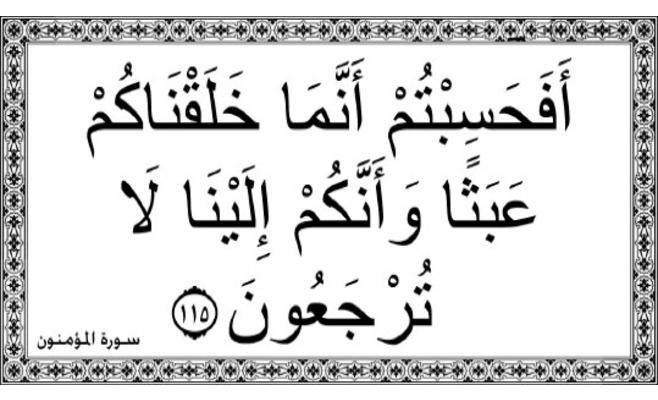 أَفَحَسِبْتُمْ أَنَّمَا خَلَقْنَاكُمْ
عَبَثًا وَأَنَّكُمْ إِلَيْنَا لَا
تُرْجَعُونَ ١١٥
سورة المؤمنون